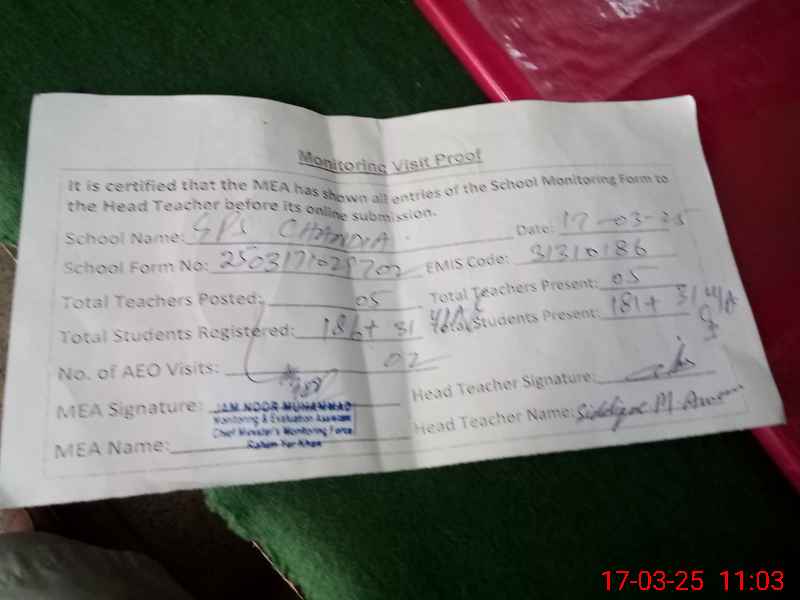 Monitoring Visit Proof
It is certified that the MEA has shown all entries of the School Monitoring Form to
the Head Teacher before its online submission.
School Name: GPS CHANDIA. Date: 17-03-25
School Form No: EMIS Code: 31310186
Total Teachers Posted: 05 Total Teachers Present: 05
Total Students Registered: 186 + 31 Total Students Present: 181 + 31
No. of AEO Visits: 02
MEA Signature: Head Teacher Signature:
JAM NOOR MUHAMMAD
Monitoring & Evaluation Assistant
Chief Minister's Monitoring Force
Rahim Yar Khan
MEA Name: Head Teacher Name: M.
17-03-25 11:03